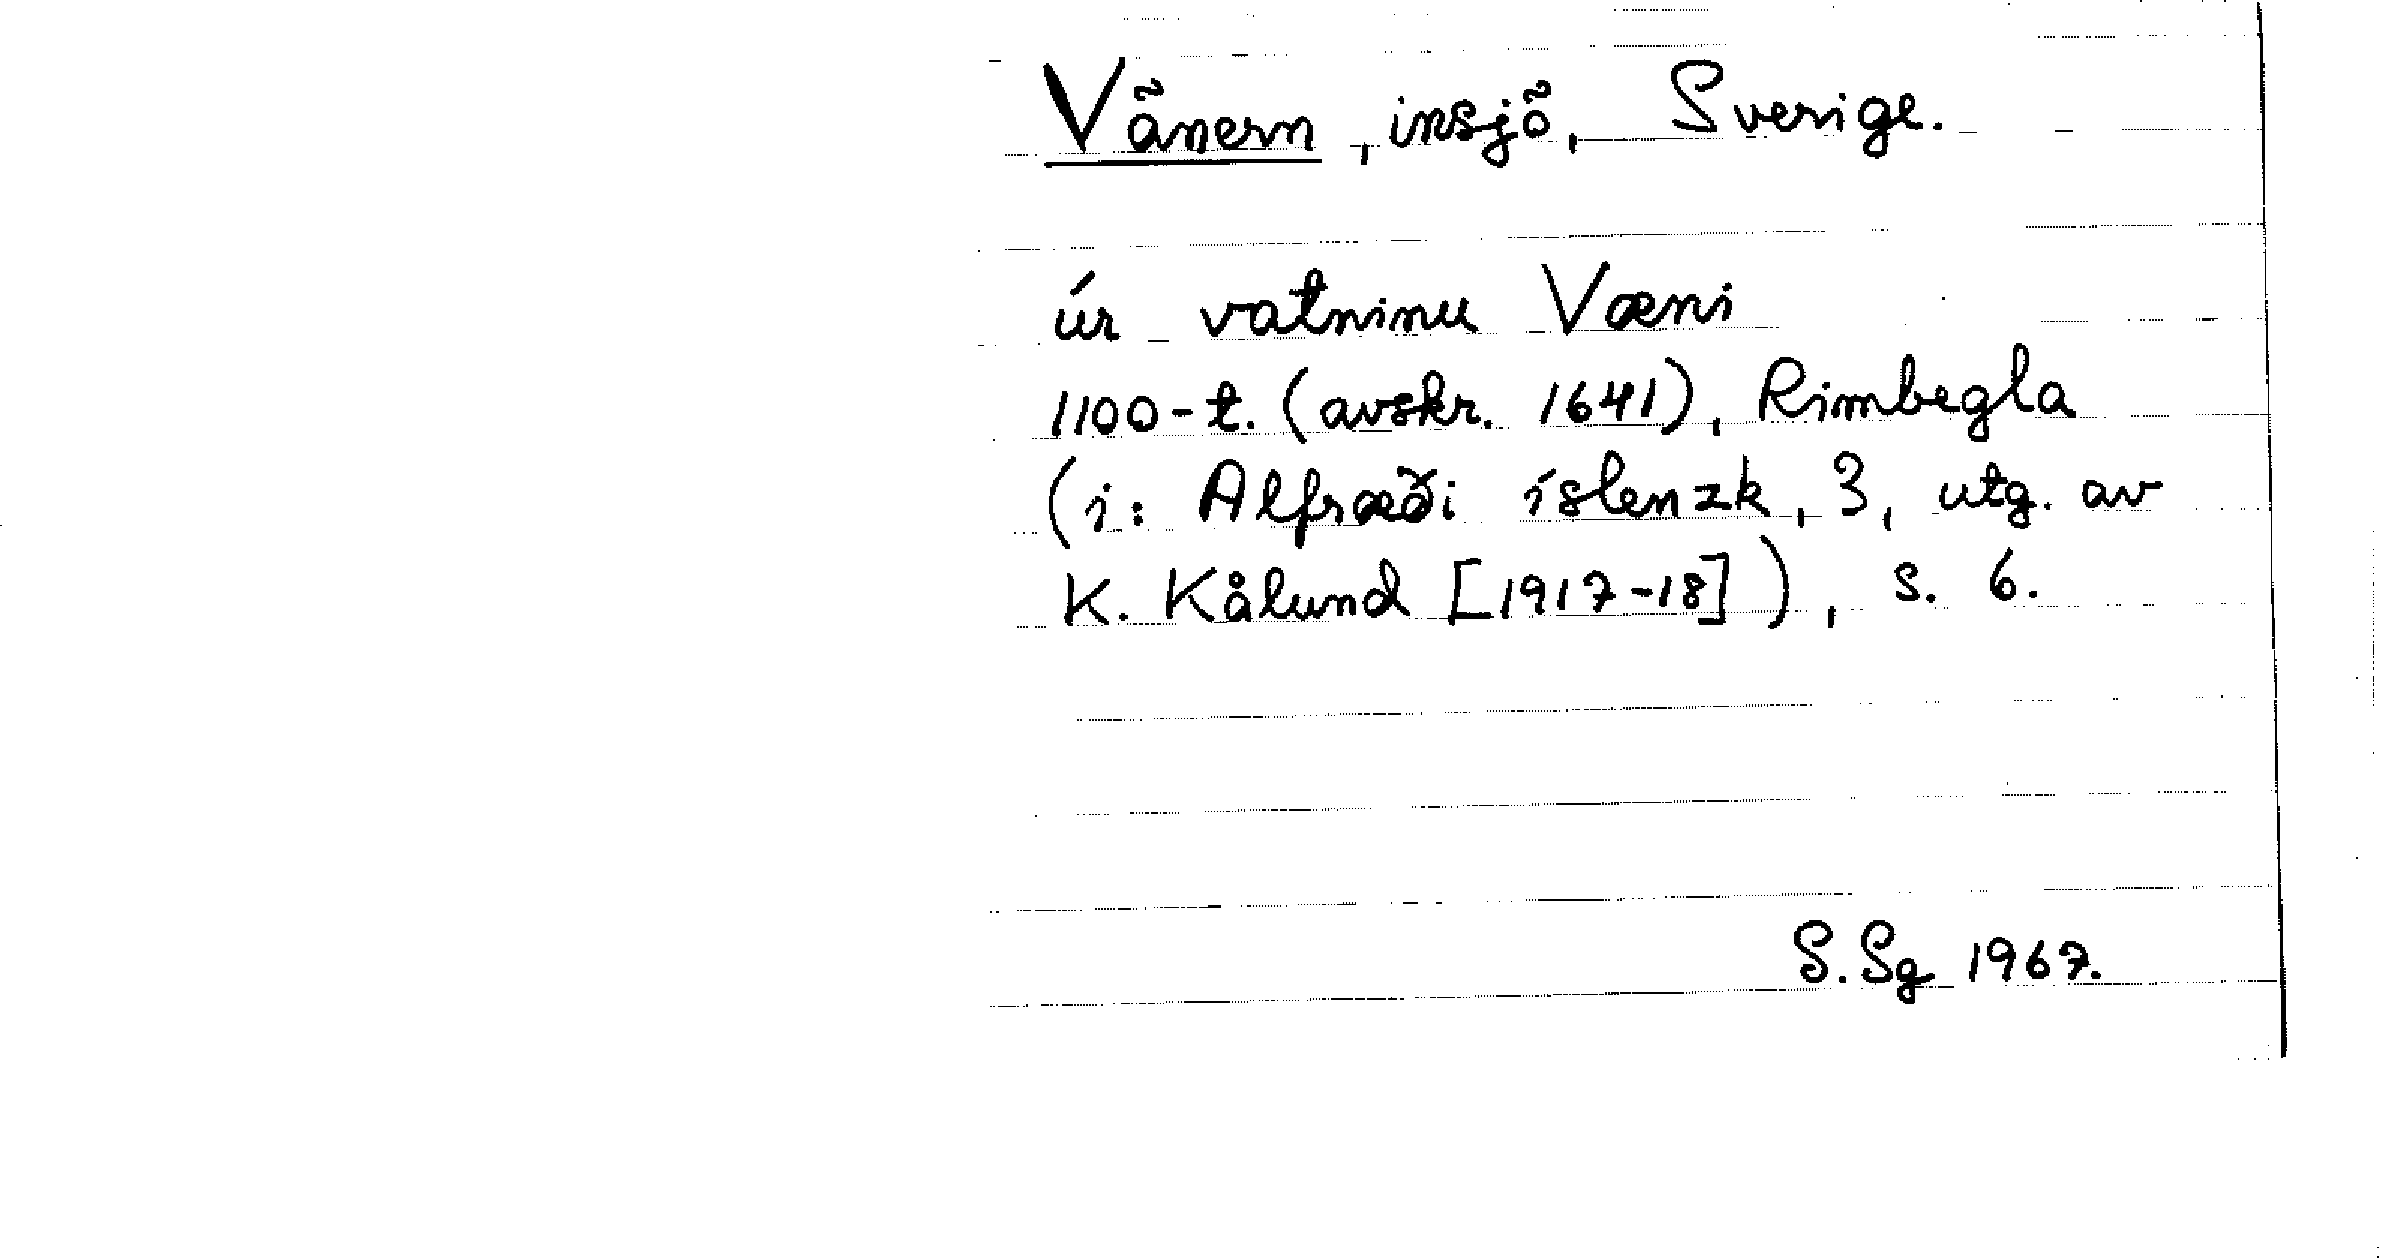 Vänern, insjö, Sverige.
úr vatninu Væni
1100-t. (avskr. 1641), Rimbegla
(i: Alfræði íslenzk, 3, utg. av
K. Kålund [1917-18]), s. 6.
S. Sg 1967.